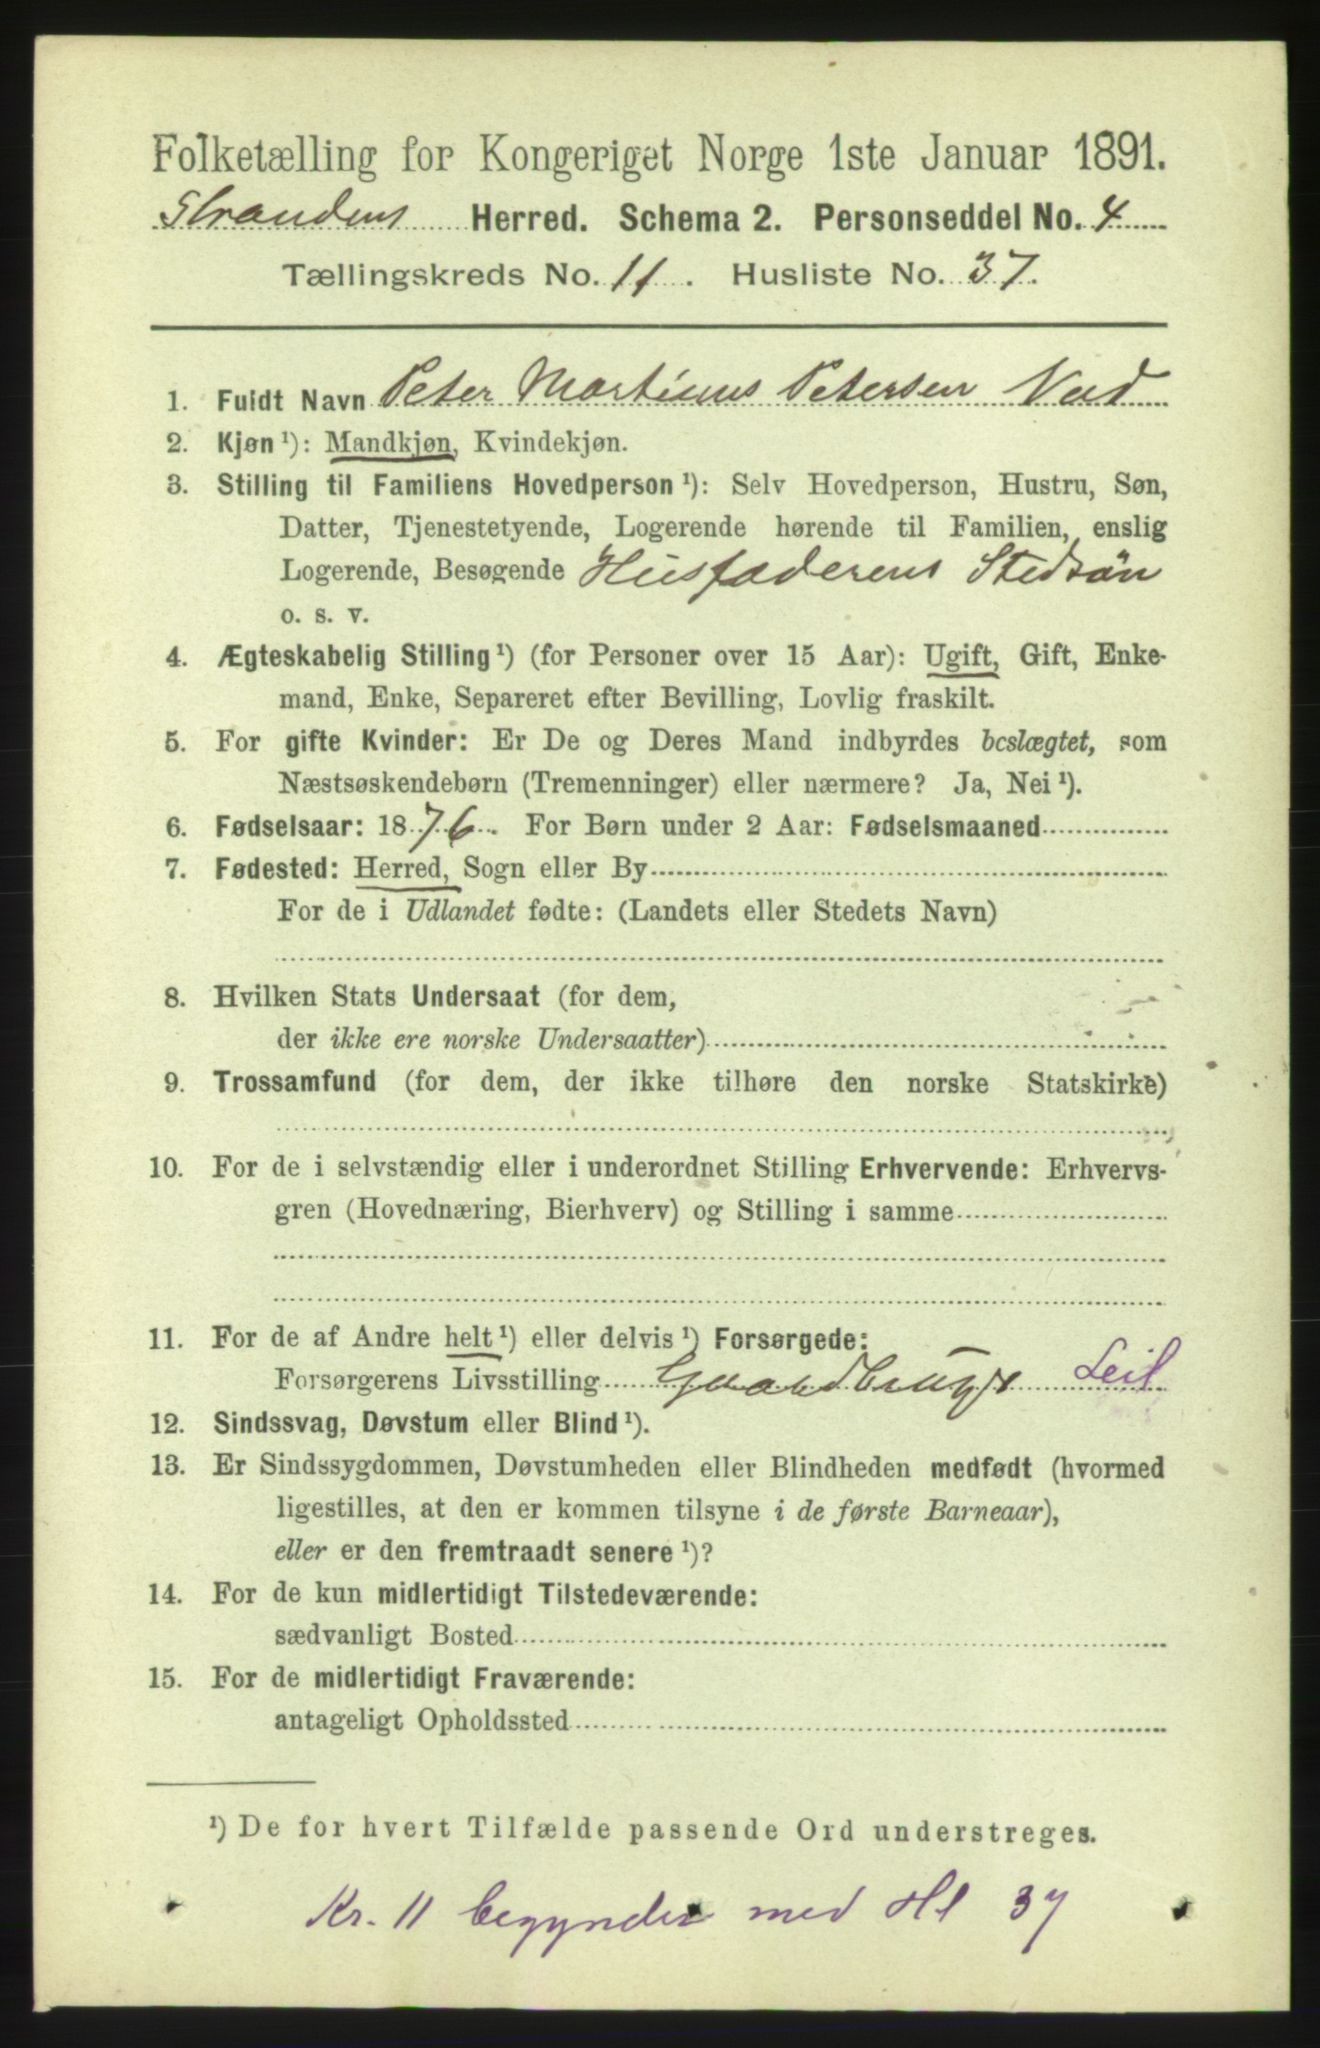 Folketælling for Kongeriget Norge 1ste Januar 1891.
Strandens Herred. Schema 2. Personseddel No. 4
Tællingskreds No. 11. Husliste No. 37.
1. Fuldt Navn Peter Martinus Petersen
2. Kjøn ¹): Mandkjøn, Kvindekjøn.
3. Stilling til Familiens Hovedperson ¹): Selv Hovedperson, Hustru, Søn,
Datter, Tjenestetyende, Logerende hørende til Familien, enslig
Logerende, Besøgende Husfaderens Stedsøn
o. s. v.
4. Ægteskabelig Stilling ¹) (for Personer over 15 Aar): Ugift, Gift, Enke-
mand, Enke, Separeret efter Bevilling, Lovlig fraskilt.
5. For gifte Kvinder: Er De og Deres Mand indbyrdes beslægtet, som
Næstsøskendebørn (Tremenninger) eller nærmere? Ja, Nei ¹).
6. Fødselsaar: 1876. For Børn under 2 Aar: Fødselsmaaned
7. Fødested: Herred, Sogn eller By
For de i Udlandet fødte: (Landets eller Stedets Navn)
8. Hvilken Stats Undersaat (for dem,
der ikke ere norske Undersaatter)
9. Trossamfund (for dem, der ikke tilhøre den norske Statskirke)
10. For de i selvstændig eller i underordnet Stilling Erhvervende: Erhvervs-
gren (Hovednæring, Bierhverv) og Stilling i samme
11. For de af Andre helt ¹) eller delvis ¹) Forsørgede:
Forsørgerens Livsstilling Leil
12. Sindssvag, Døvstum eller Blind ¹).
13. Er Sindssygdommen, Døvstumheden eller Blindheden medfødt (hvormed
ligestilles, at den er kommen tilsyne i de første Barneaar),
eller er den fremtraadt senere ¹)?
14. For de kun midlertidigt Tilstedeværende:
sædvanligt Bosted
15. For de midlertidigt Fraværende:
antageligt Opholdssted
¹) De for hvert Tilfælde passende Ord understreges.
Kr. 11 begynder med Hl 37